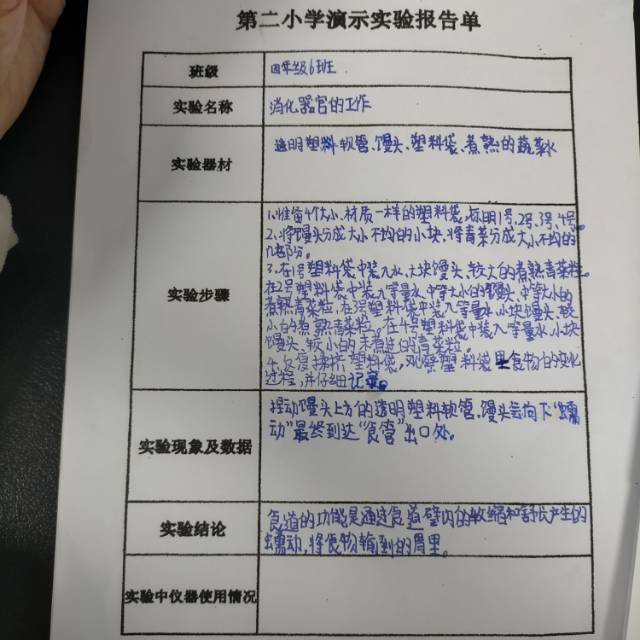 第二小学演示实验报告单
班级
四年级6班
实验名称
消化器官的工作
实验器材
透明塑料软管、馒头、塑料袋、煮熟的蔬菜、水
实验步骤
1.准备4个大小、材质一样的塑料袋,标明1号、2号、3号、4号。
2.将馒头分成大小不均的小块,将青菜分成大小不均的
几部分。
3.在1号塑料袋中装入水、大块馒头、较大的煮熟青菜粒。
在2号塑料袋中装入等量水、中等大小的馒头、中等大小的
煮熟青菜粒,在3号塑料袋中装入等量水、小块馒头、较
小的煮熟青菜粒。在4号塑料袋中装入等量水、小块
馒头、较小的未煮过的青菜粒。
4.反复揉挤塑料袋,观察塑料袋里食物的变化
过程,并仔细记录。
实验现象及数据
捏动馒头上方的透明塑料软管,馒头会向下“蠕
动”最终到达“食管”出口处。
实验结论
食道的功能是通过食道壁肉的收缩和舒长产生的
蠕动,将食物输到的胃里。
实验中仪器使用情况